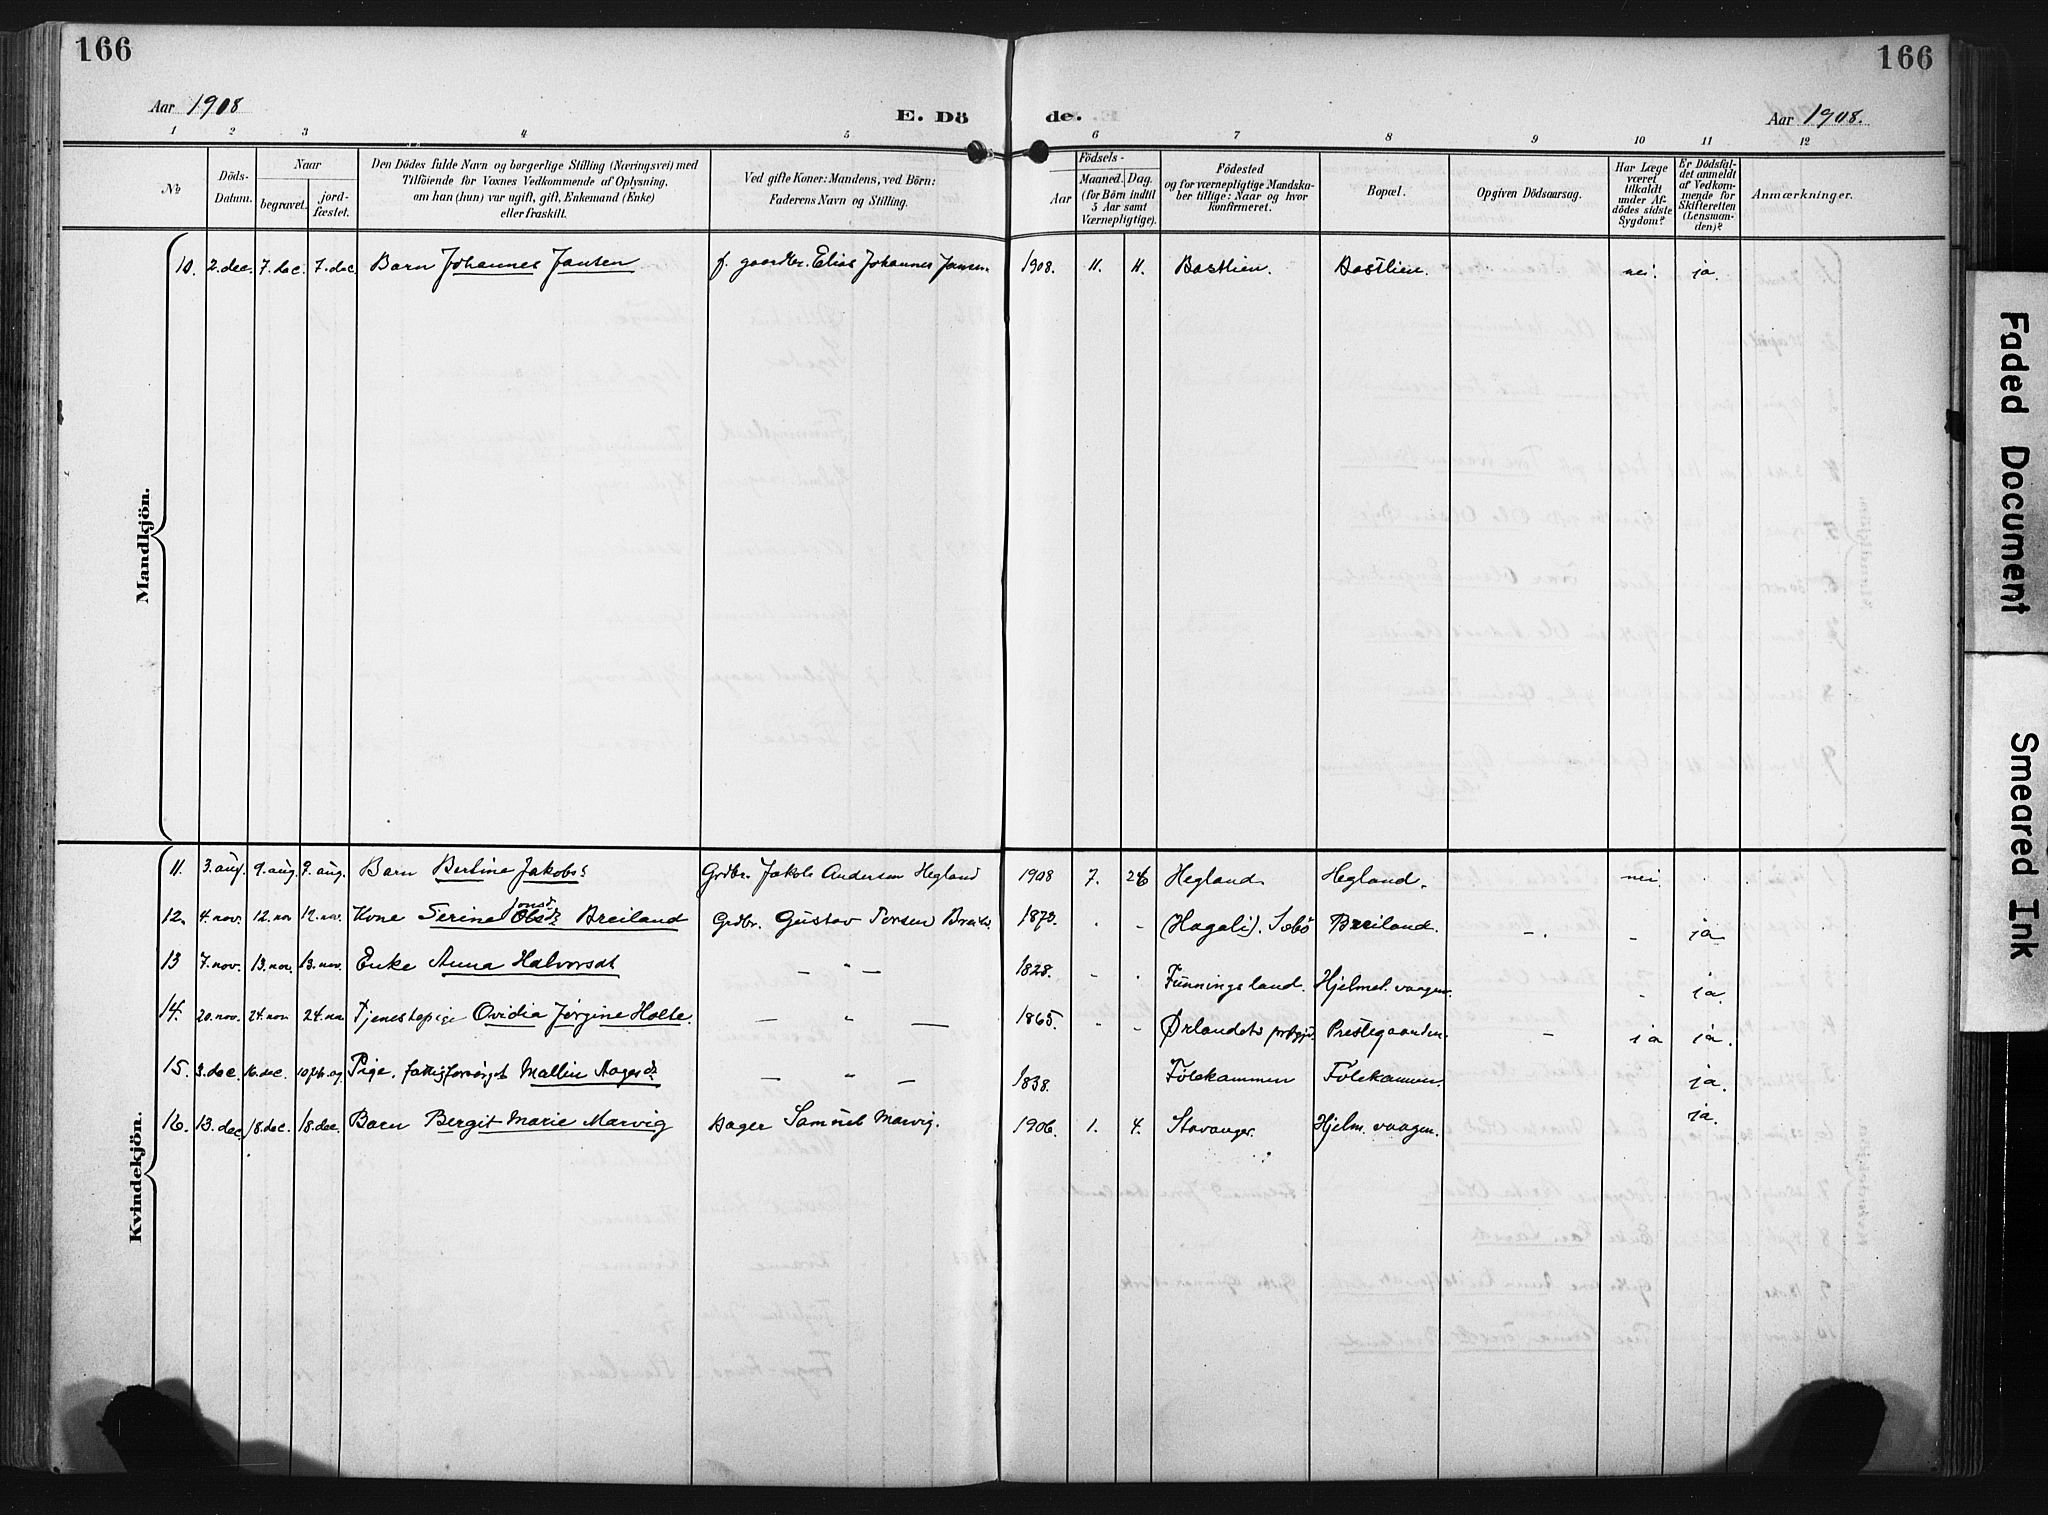 166
166
Aar 1908
E. Dö de.
Aar 1908.
1 2 3 4 5 6 7 8 9 10 11 12
No
Döds-
Datum.
Naar
begravet.
jord-
fæstet.
Den Dödes fulde Navn og borgerlige Stilling (Næringsvei) med
Tilföiende for Voxnes Vedkommende af Oplysning,
om han (hun) var ugift, gift, Enkemand (Enke)
eller fraskilt.
Ved gifte Koner: Mandens, ved Börn:
Faderens Navn og Stilling.
Födsels-
Aar
Maaned. Dag.
(for Börn indtil
5 Aar samt
Værnepligtige).
Födested
og for værnepligtige Mandska-
ber tillige: Naar og hvor
konfirmeret.
Bopæl.
Opgiven Dödsaarsag.
Har Læge
været
tilkaldt
under Af-
dödes sidste
Sygdom?
Er Dödsfal-
det anmeldt
af Vedkom-
mende for
Skifteretten
(Lensman-
den)?
Anmærkninger.
Mandkjön.
10. 2. dec. 7. dec. 7. dec. Barn Johannes Jansen f. gaardbr. Elias Johannes Jansen 1908. 11. 11. Bostlien. Bostlien. nei. ja.
Kvindekjön.
11. 3. aug. 9. aug. 9. aug. Barn Bertine Jakobsd. Grdbr. Jakob Andersen Hegland 1908 7. 26 Hegland Hegland. nei.
12. 4. nov. 12. nov 12. nov. Kone Serine Olsd. Breiland Grdbr. Gustav Torsen 1873. - (Hagali). Breiland. - . - ja
13 7. nov. 13. nov. 13. nov. Enke Anna Halvorsdt — " — 1828. - Funningsland. Hjelmel. vaagen. ja.
14. 20. nov. 24. nov 24. nov Tjenestepige Ovidia Jørgine Holte. — " — 1865. - Ørlandets prstgjd. Prestegaarden. - ja ja.
15. 3. dec. 16. dec. Pige, fattigforsørget Mallin Aagesd. — " — 1838. Følekammen Følekammen. ja.
16. 13. dec. 18. dec. 18. dec. Barn Bergit Marie Marvig Bager Samuel Marvig. 1906. 1. 4. Stavanger. Hjelm. vaagen. ja.
Faded Document
Smeared Ink